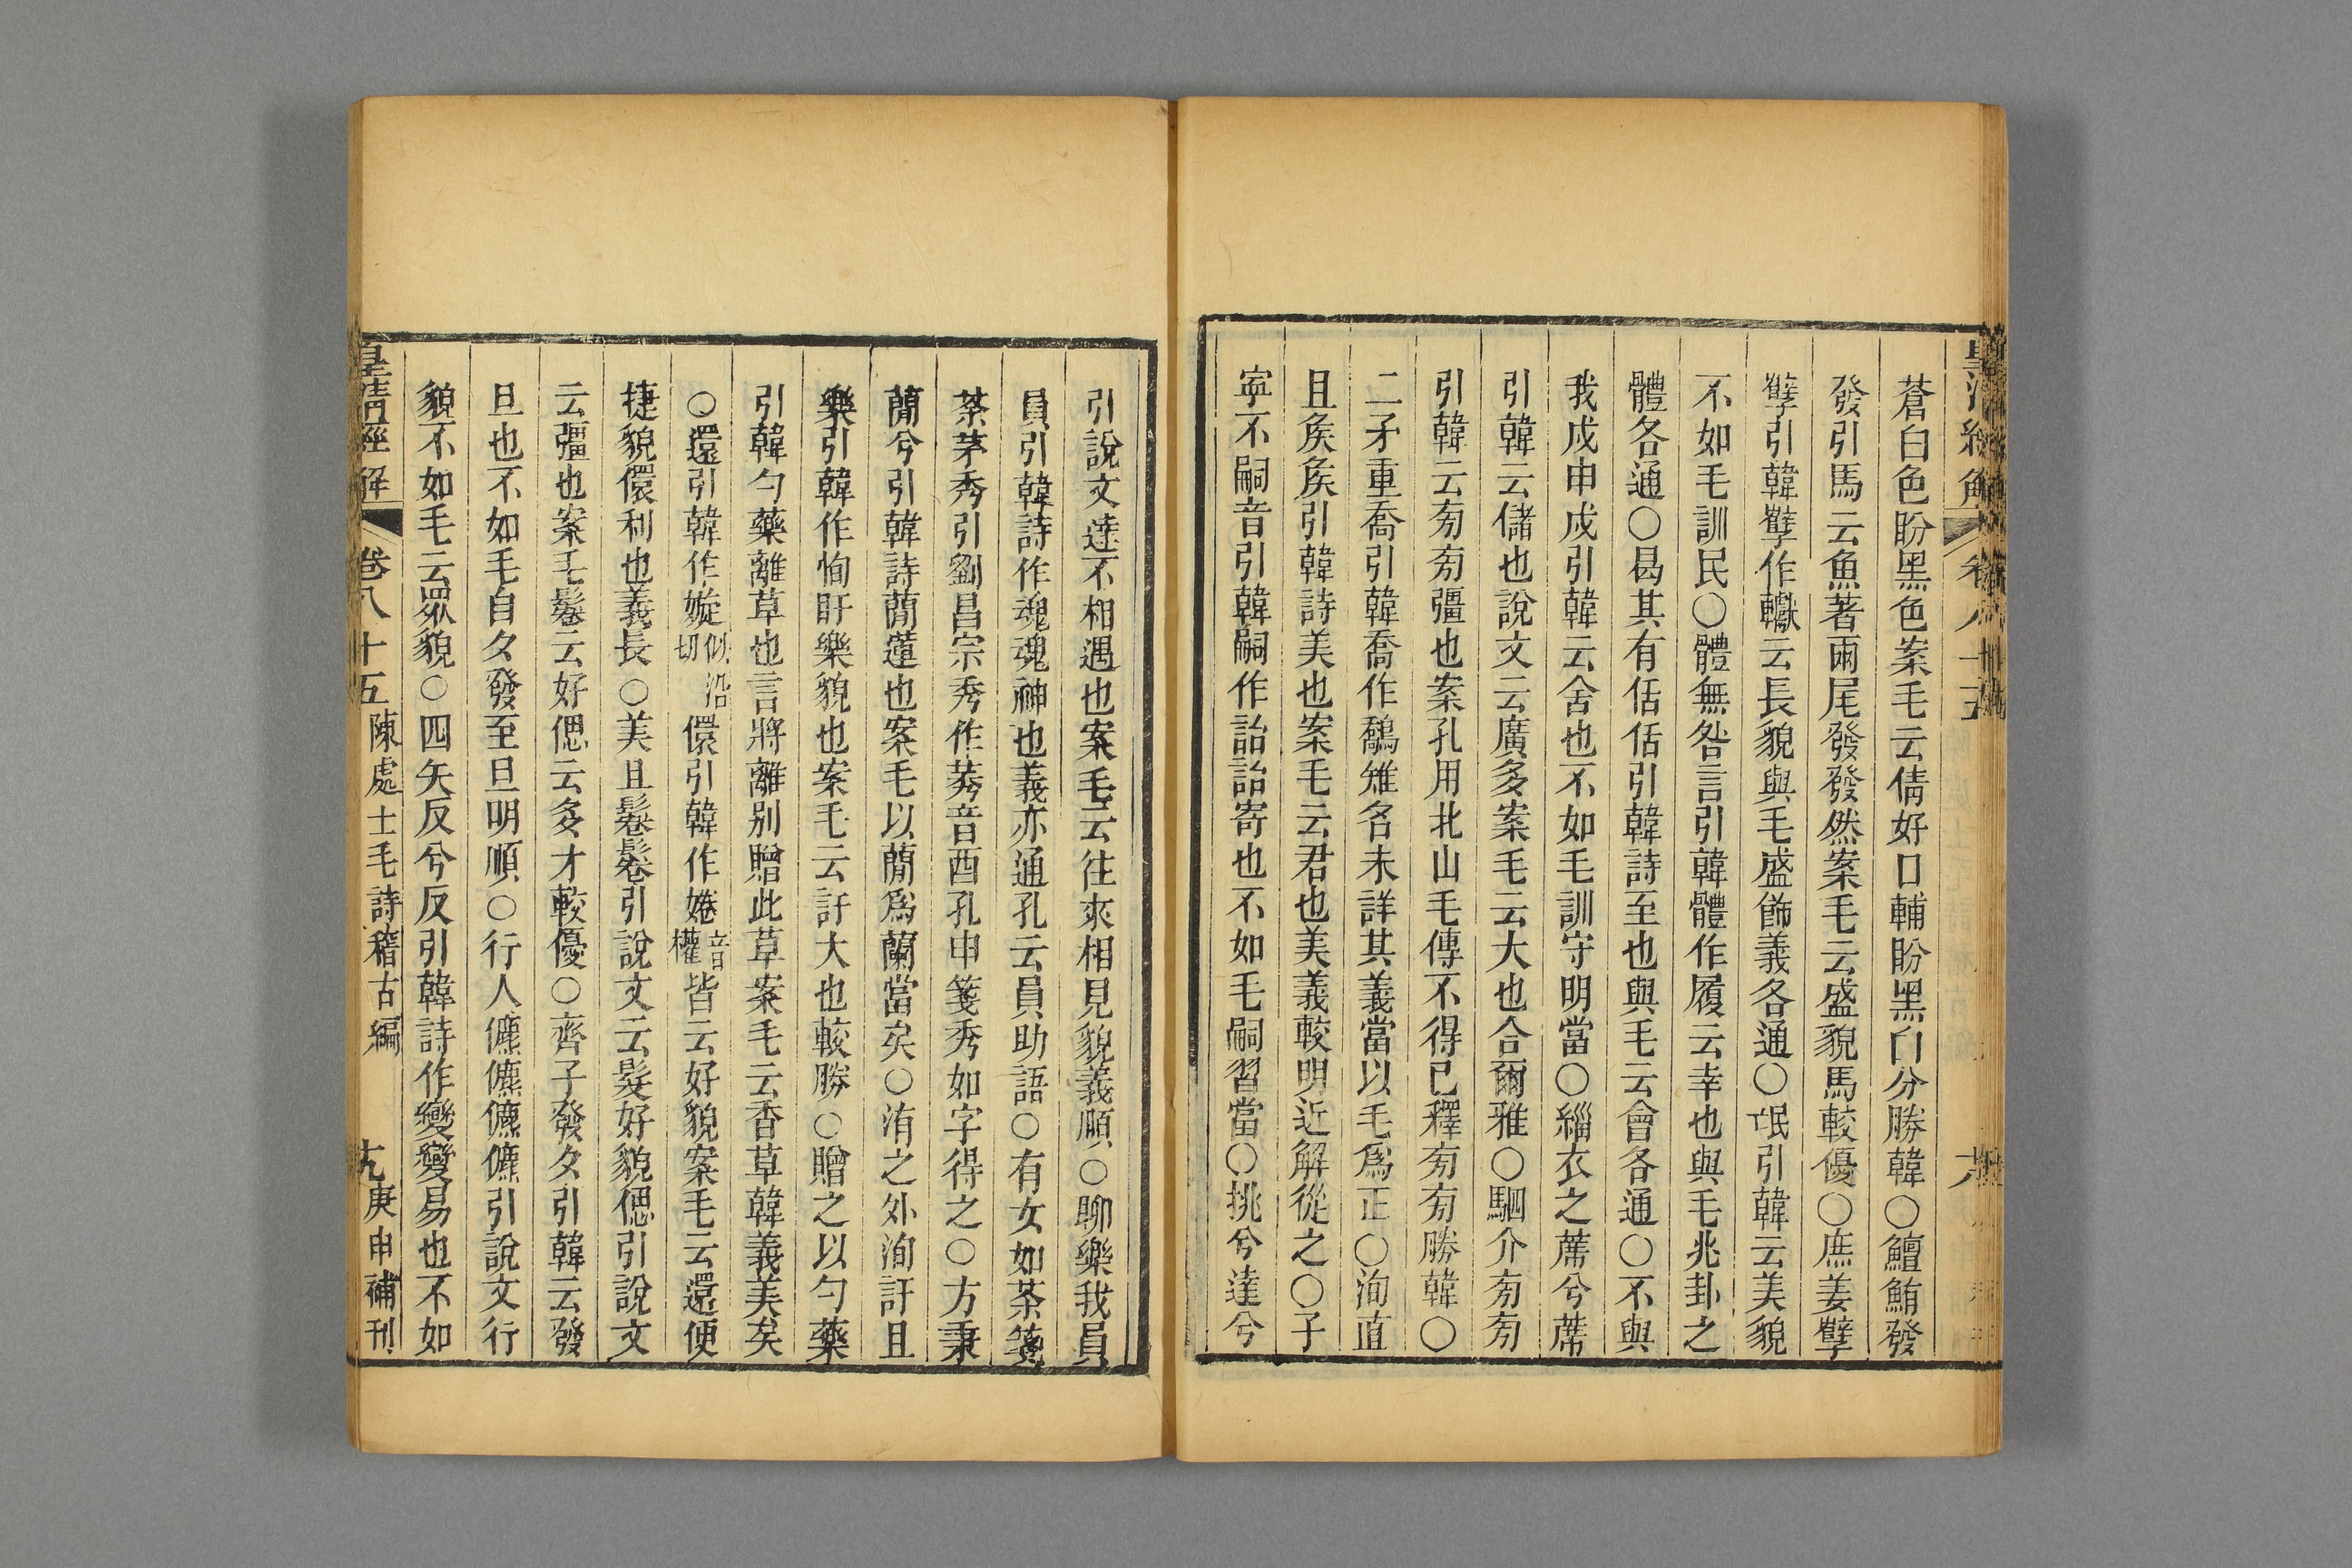 蒼白色盼黑色案毛云倩好口輔盼黑白分勝韓○鱣鮪發
發引馬云魚著兩尾發發然案毛云盛貌馬較優○庶姜孽
孽引韓孽作𨏩云長貌與毛盛飾義各通○氓引韓云美貌
不如毛訓民○體無咎言引韓體作履云幸也與毛兆卦之
體各通○曷其有佸佸引韓詩至也與毛云會各通○不與
我戍申戍引韓云舍也不如毛訓守明當○緇衣之蓆兮蓆
引韓云儲也說文云廣多案毛云大也合爾雅○駟介旁旁
引韓云旁旁彊也案孔用北山毛傳不得已釋旁旁勝韓○
二矛重喬引韓喬作鷮雉名未詳其義當以毛爲正○洵直
且矦矦引韓詩美也案毛云君也美義較明近解從之○子
寜不嗣音引韓嗣作詒詒寄也不如毛嗣習當○挑兮達兮
引說文達不相遇也案毛云往來相見貌義順○聊樂我員
員引韓詩作魂魂神也義亦通孔云員助語○有女如荼箋
荼茅秀引劉昌宗秀作莠音酉孔申箋秀如字得之○方秉
蕑兮引韓詩蕑蓮也案毛以蕑爲蘭當矣○洧之外洵訏且
樂引韓作恂盱樂貌也案毛云訏大也較勝○贈之以勺藥
引韓勺藥離草也言將離別贈此草案毛云香草韓義美矣
○還引韓作嫙似沿切儇引韓作婘音權皆云好貌案毛云還便
捷貌儇利也義長○美且鬈鬈引說文云髮好貌偲引說文
云彊也案毛鬈云好偲云多才較優○齊子發夕引韓云發
旦也不如毛自夕發至旦明順○行人儦儦儦儦引說文行
貌不如毛云眾貌○四矢反兮反引韓詩作變變易也不如
皇清經解 卷八十五 陳處士毛詩稽古編 九 庚申補刊